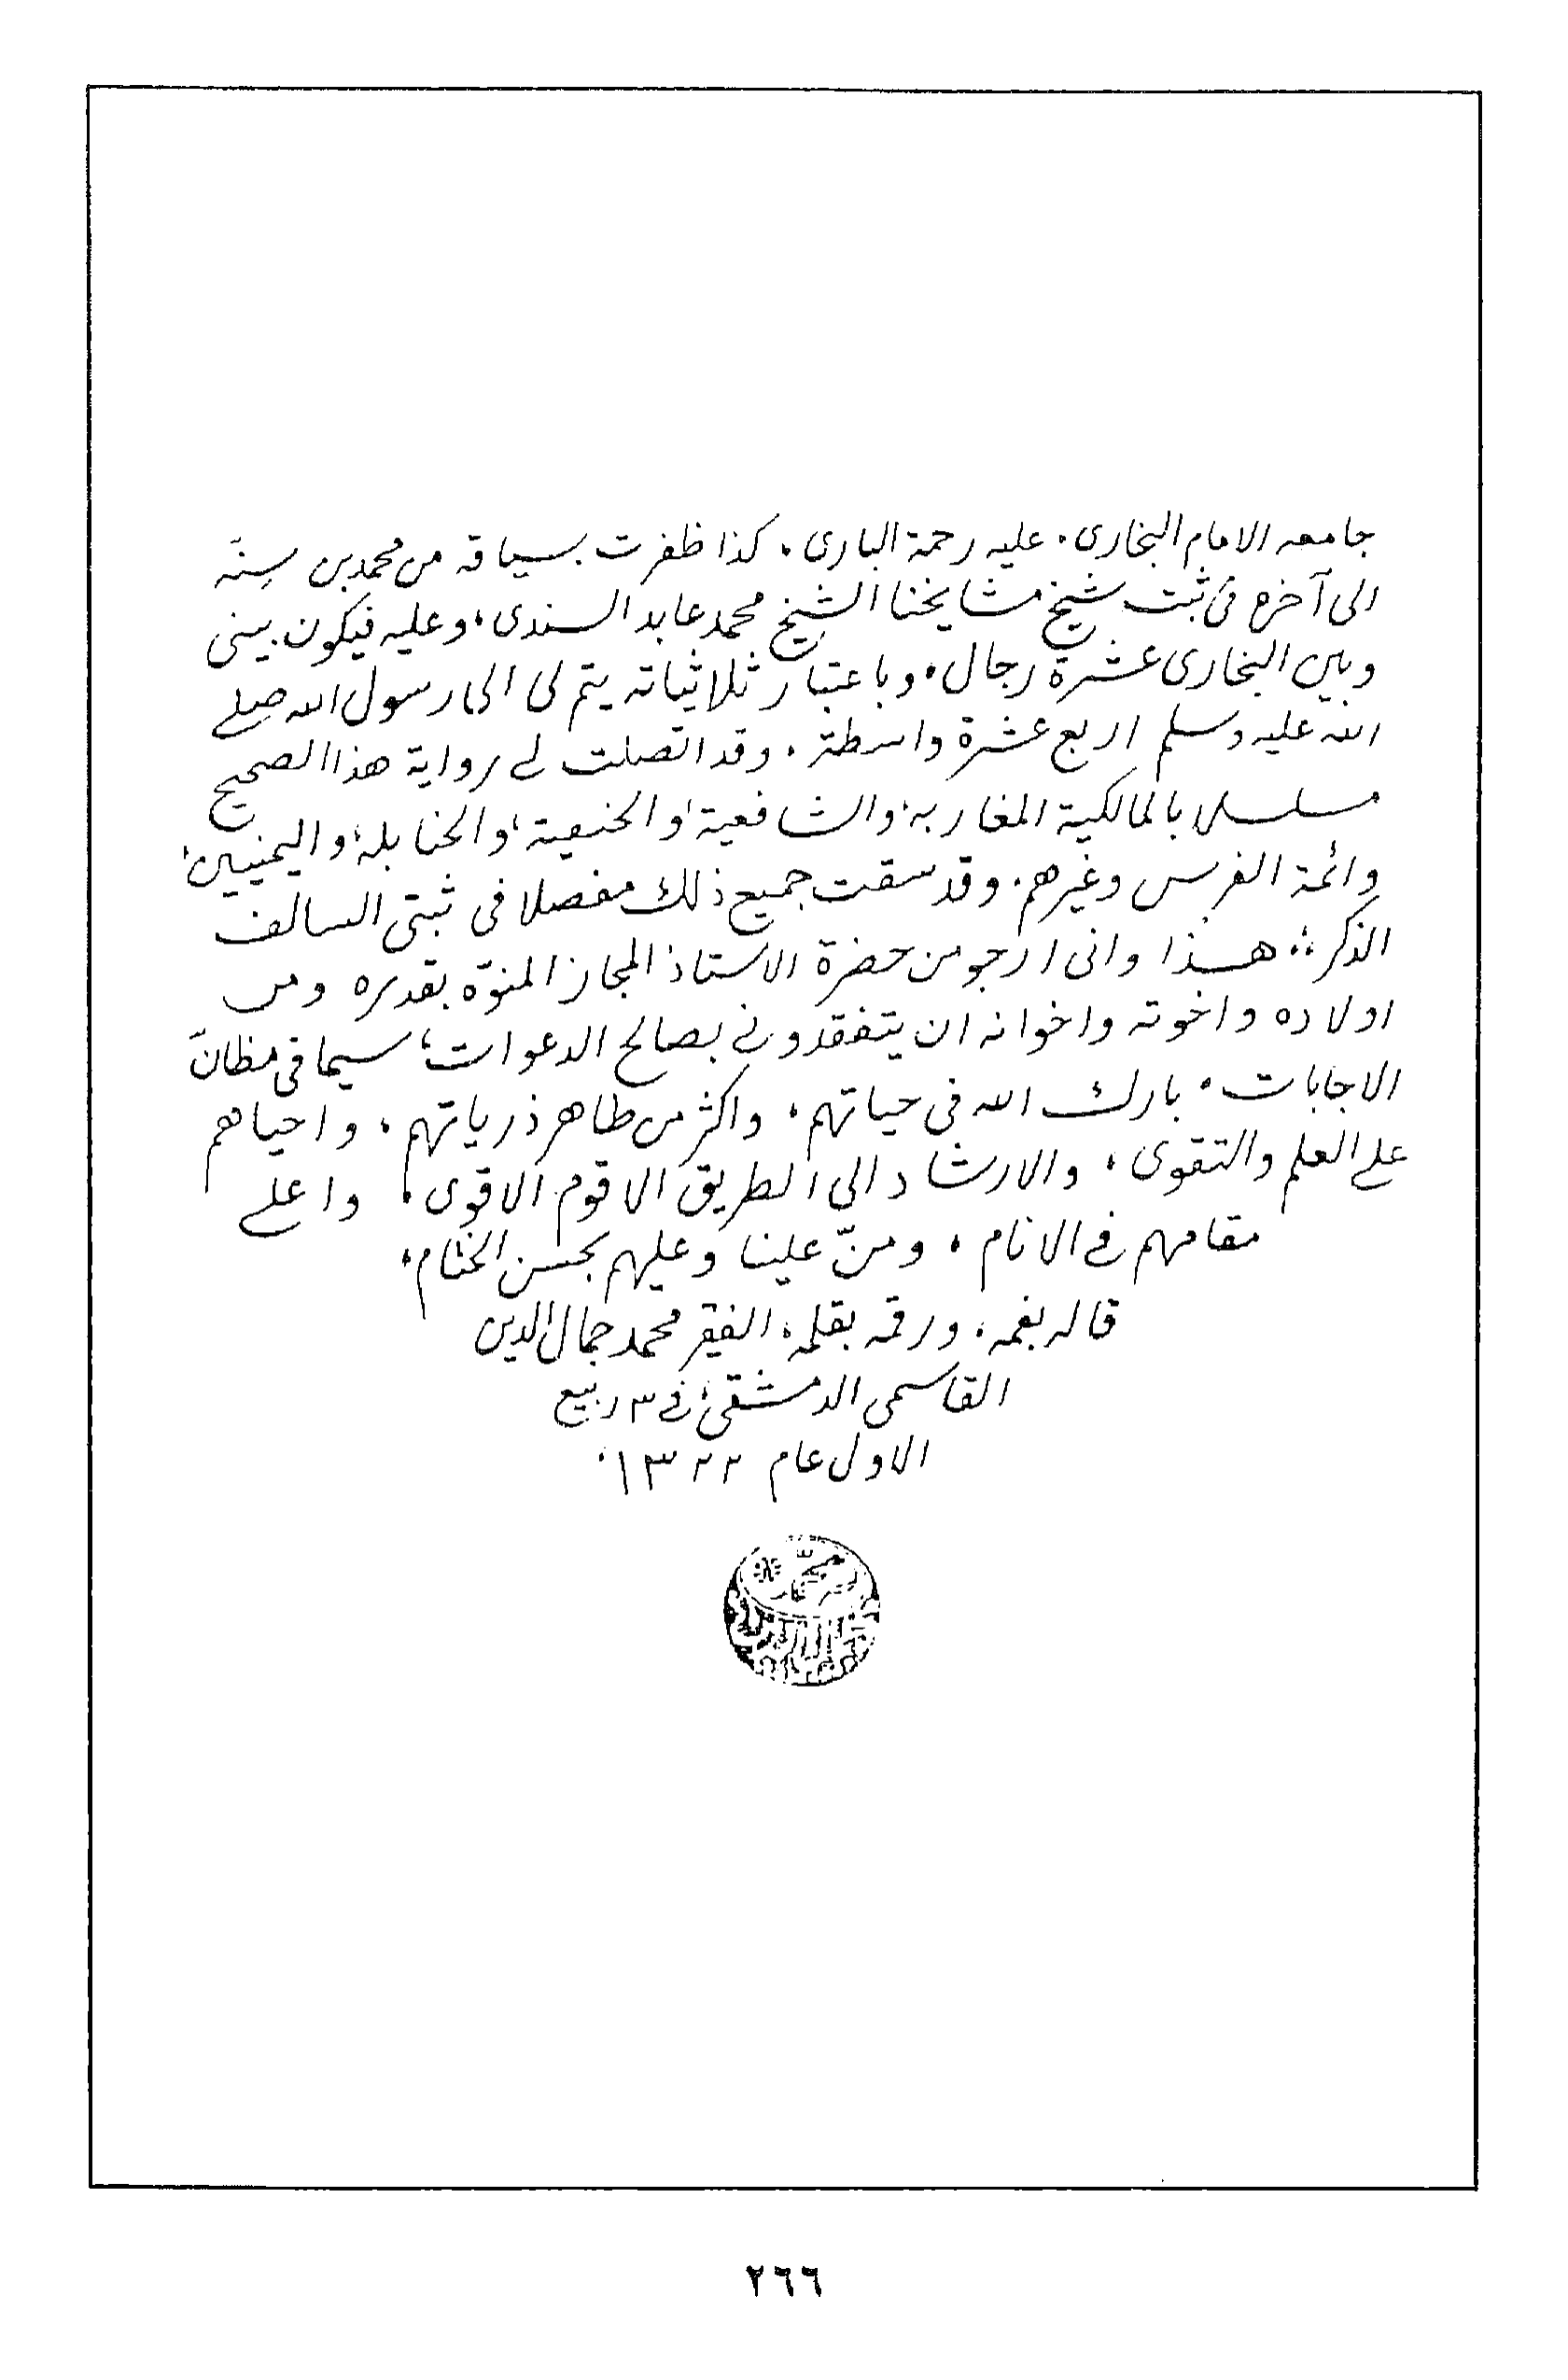 جامعه الامام البخارى، عليه رحمة البارى، كذا ظفرت بسياقه من محمد بن سِنَّه
الى آخره فى ثبت شيخ مشايخنا الشيخ محمد عابد السندى، وعليه فيكون بينى
وبين البخارى عشرة رجال، وباعتبار ثلاثياته يتم لى الى رسول الله صلى
الله عليه وسلم اربع عشرة واسطة، وقد اتصلت لى رواية هذا الصحيح
مسلسلا بالمالكية المغاربه، والشافعية، والحنفية، والحنابله، واليمنيين،
وائمة الفرس وغيرهم، وقد سقت جميع ذلك مفصلا فى ثبتى السالف
الذكر ؞ هذا وانى ارجو من حضرة الاستاذ المجاز المنوّه بقدره ومن
اولاده واخوته واخوانه ان يتفقدونى بصالح الدعوات، سيما فى مظانّ
الاجابات، بارك الله فى حياتهم، واكثر من طاهر ذرياتهم، واحياهم
على العلم والتقوى، والارشاد الى الطريق الاقوم الاقوى، واعلى
مقامهم فى الانام، ومنّ علينا وعليهم بحسن الختام،
قاله بفمه، ورقمه بقلمه، الفقير محمد جمال الدين
القاسمى الدمشقى، فى ٣ ربيع
الاول عام ١٣٢٢،
محمد
٢٦٦